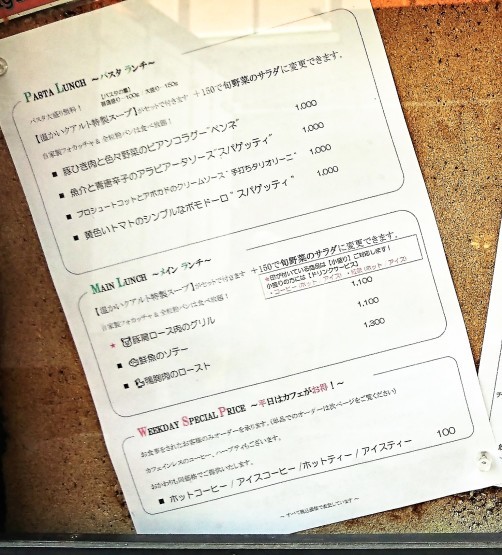 PASTA LUNCH ～パスタ ランチ～
パスタ大盛り無料！ 【パスタの量】
普通盛り…100g 大盛り…150g
【温かいクアルト特製スープ】がセットで付きます +150で旬野菜のサラダに変更できます。
自家製フォカッチャ& 全粒粉パンは食べ放題！
■ 豚ひき肉と色々野菜のビアンコラグー"ペンネ" 1,000
■ 魚介と青唐辛子のアラビアータソース"スパゲッティ" 1,000
■ プロシュートコットとアボカドのクリームソース"手打ちタリオリーニ" 1,000
■ 黄色いトマトのシンプルなポモドーロ"スパゲッティ" 1,000
MAIN LUNCH ～メイン ランチ～
【温かいクアルト特製スープ】がセットで付きます +150で旬野菜のサラダに変更できます。
自家製フォカッチャ& 全粒粉パンは食べ放題！
★印が付いている商品は【小盛り】に対応します！
小盛りの方には【ドリンクサービス】
・コーヒー(ホット/アイス) ・紅茶(ホット/アイス)
★ ■ 豚肩ロース肉のグリル 1,100
■ 鮮魚のソテー 1,100
■ 鴨胸肉のロースト 1,300
WEEKDAY SPECIAL PRICE ～平日はカフェがお得！～
お食事をされたお客様のみオーダーを承ります。(単品でのオーダーは次ページをご覧ください)
カフェインレスのコーヒー、ハーブティもございます。
おかわりも同価格でご提供いたします。
■ ホットコーヒー / アイスコーヒー / ホットティー / アイスティー 100
～すべて税込価格で表記しています～